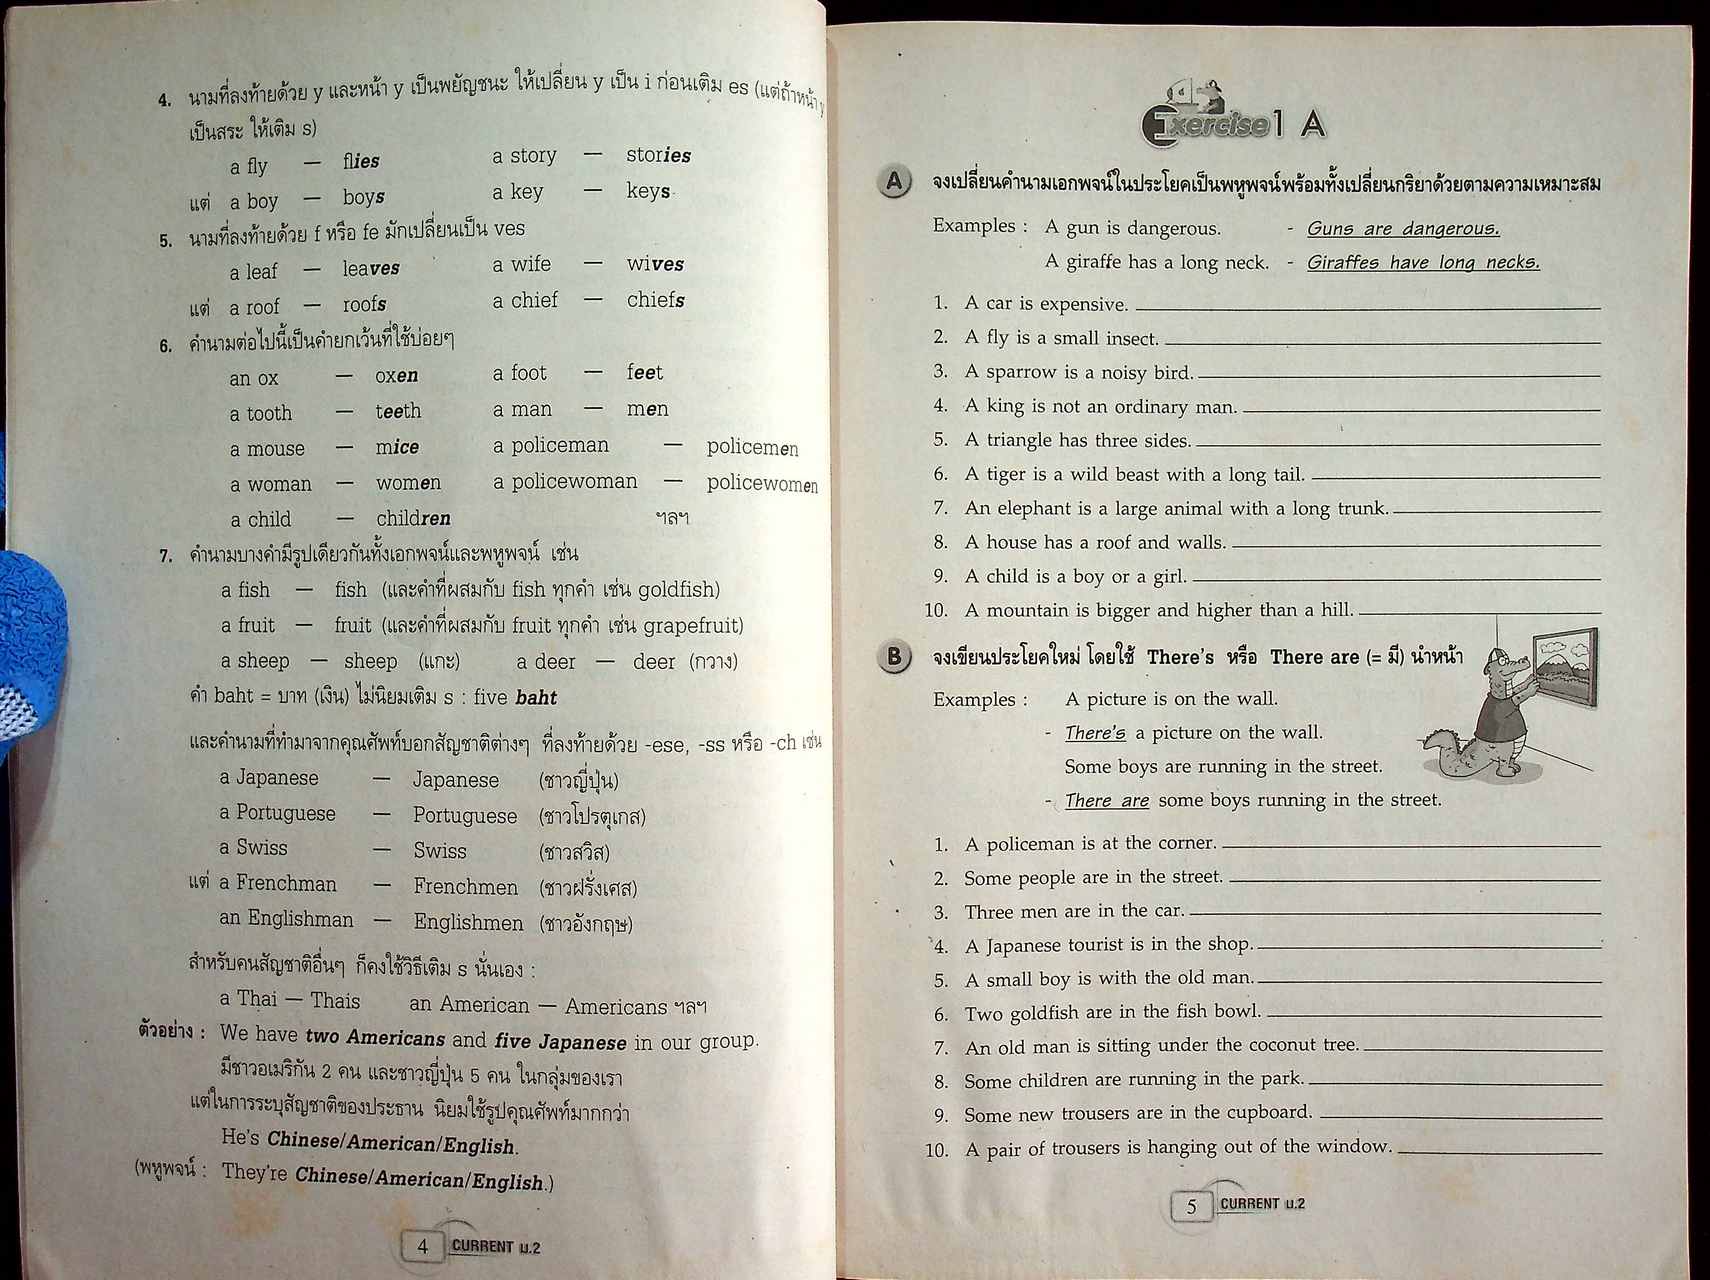 4. นามที่ลงท้ายด้วย y และหน้า y เป็นพยัญชนะ ให้เปลี่ยน y เป็น i ก่อนเติม es (แต่ถ้าหน้า y
เป็นสระ ให้เติม s)
a fly — flies a story — stories
แต่ a boy — boys a key — keys
5. นามที่ลงท้ายด้วย f หรือ fe มักเปลี่ยนเป็น ves
a leaf — leaves a wife — wives
แต่ a roof — roofs a chief — chiefs
6. คำนามต่อไปนี้เป็นคำยกเว้นที่ใช้บ่อยๆ
an ox — oxen a foot — feet
a tooth — teeth a man — men
a mouse — mice a policeman — policemen
a woman — women a policewoman — policewomen
a child — children ฯลฯ
7. คำนามบางคำมีรูปเดียวกันทั้งเอกพจน์และพหูพจน์ เช่น
a fish — fish (และคำที่ผสมกับ fish ทุกคำ เช่น goldfish)
a fruit — fruit (และคำที่ผสมกับ fruit ทุกคำ เช่น grapefruit)
a sheep — sheep (แกะ) a deer — deer (กวาง)
คำ baht = บาท (เงิน) ไม่นิยมเติม s : five baht
และคำนามที่ทำมาจากคุณศัพท์บอกสัญชาติต่างๆ ที่ลงท้ายด้วย -ese, -ss หรือ -ch เช่น
a Japanese — Japanese (ชาวญี่ปุ่น)
a Portuguese — Portuguese (ชาวโปรตุเกส)
a Swiss — Swiss (ชาวสวิส)
แต่ a Frenchman — Frenchmen (ชาวฝรั่งเศส)
an Englishman — Englishmen (ชาวอังกฤษ)
สำหรับคนสัญชาติอื่นๆ ก็คงใช้วิธีเติม s นั่นเอง :
a Thai — Thais an American — Americans ฯลฯ
ตัวอย่าง : We have two Americans and five Japanese in our group.
มีชาวอเมริกัน 2 คน และชาวญี่ปุ่น 5 คน ในกลุ่มของเรา
แต่ในการระบุสัญชาติของประธาน นิยมใช้รูปคุณศัพท์มากกว่า
He's Chinese/American/English.
(พหูพจน์ : They're Chinese/American/English.)
4 CURRENT ม.2
Exercise 1 A
A จงเปลี่ยนคำนามเอกพจน์ในประโยคเป็นพหูพจน์พร้อมทั้งเปลี่ยนกริยาด้วยตามความเหมาะสม
Examples : A gun is dangerous. - Guns are dangerous.
A giraffe has a long neck. - Giraffes have long necks.
1. A car is expensive.
2. A fly is a small insect.
3. A sparrow is a noisy bird.
4. A king is not an ordinary man.
5. A triangle has three sides.
6. A tiger is a wild beast with a long tail.
7. An elephant is a large animal with a long trunk.
8. A house has a roof and walls.
9. A child is a boy or a girl.
10. A mountain is bigger and higher than a hill.
B จงเขียนประโยคใหม่ โดยใช้ There's หรือ There are (= มี) นำหน้า
Examples : A picture is on the wall.
- There's a picture on the wall.
Some boys are running in the street.
- There are some boys running in the street.
1. A policeman is at the corner.
2. Some people are in the street.
3. Three men are in the car.
4. A Japanese tourist is in the shop.
5. A small boy is with the old man.
6. Two goldfish are in the fish bowl.
7. An old man is sitting under the coconut tree.
8. Some children are running in the park.
9. Some new trousers are in the cupboard.
10. A pair of trousers is hanging out of the window.
5 CURRENT ม.2